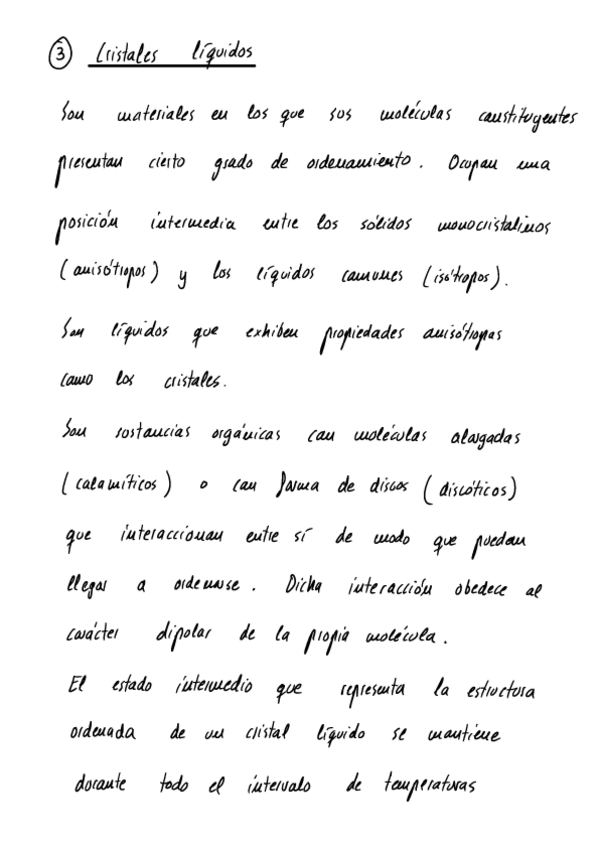 ③ Cristales líquidos
Son materiales en los que sus moléculas constituyentes
presentan cierto grado de ordenamiento. Ocupan una
posición intermedia entre los sólidos monocristalinos
(anisótropos) y los líquidos comunes (isótropos).
Son líquidos que exhiben propiedades anisótropas
como los cristales.
Son sustancias orgánicas con moléculas alargadas
(calamíticos) o con forma de discos (discóticos)
que interaccionan entre sí de modo que puedan
llegar a ordenarse. Dicha interacción obedece al
carácter dipolar de la propia molécula.
El estado intermedio que representa la estructura
ordenada de un cristal líquido se mantiene
durante todo el intervalo de temperaturas